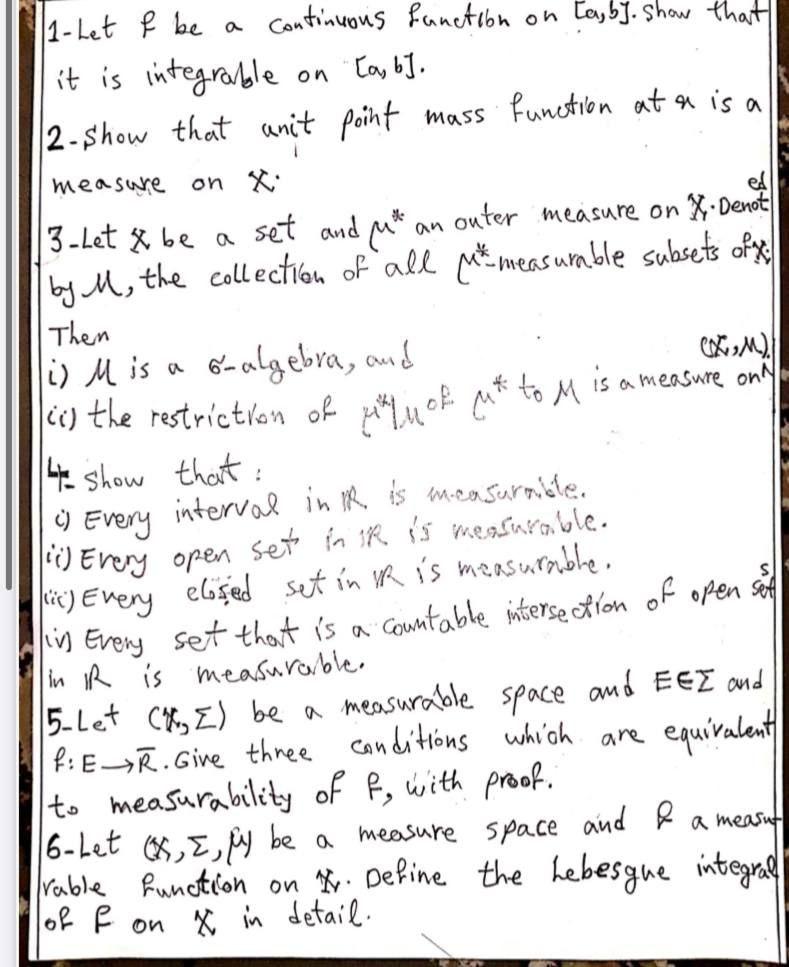 1-Let f be a continuous function on [a,b]. Show that
it is integrable on [a,b].
2-Show that unit point mass function at x is a
measure on X.
3-Let X be a set and μ* an outer measure on X. Denoted
by M, the collection of all μ*-measurable subsets of X;
Then
i) M is a σ-algebra, and
ii) the restriction of μ*|M of μ* to M is a measure on (X,M).
4- Show that :
i) Every interval in IR is measurable.
ii) Every open set in IR is measurable.
iii) Every closed set in IR is measurable.
iv) Every set that is a countable intersection of open sets
in IR is measurable.
5-Let (X,Σ) be a measurable space and E∈Σ and
f:E→R̅. Give three conditions which are equivalent
to measurability of f, with proof.
6-Let (X,Σ,μ) be a measure space and f a measu
rable function on X. Define the Lebesgue integral
of f on X in detail.